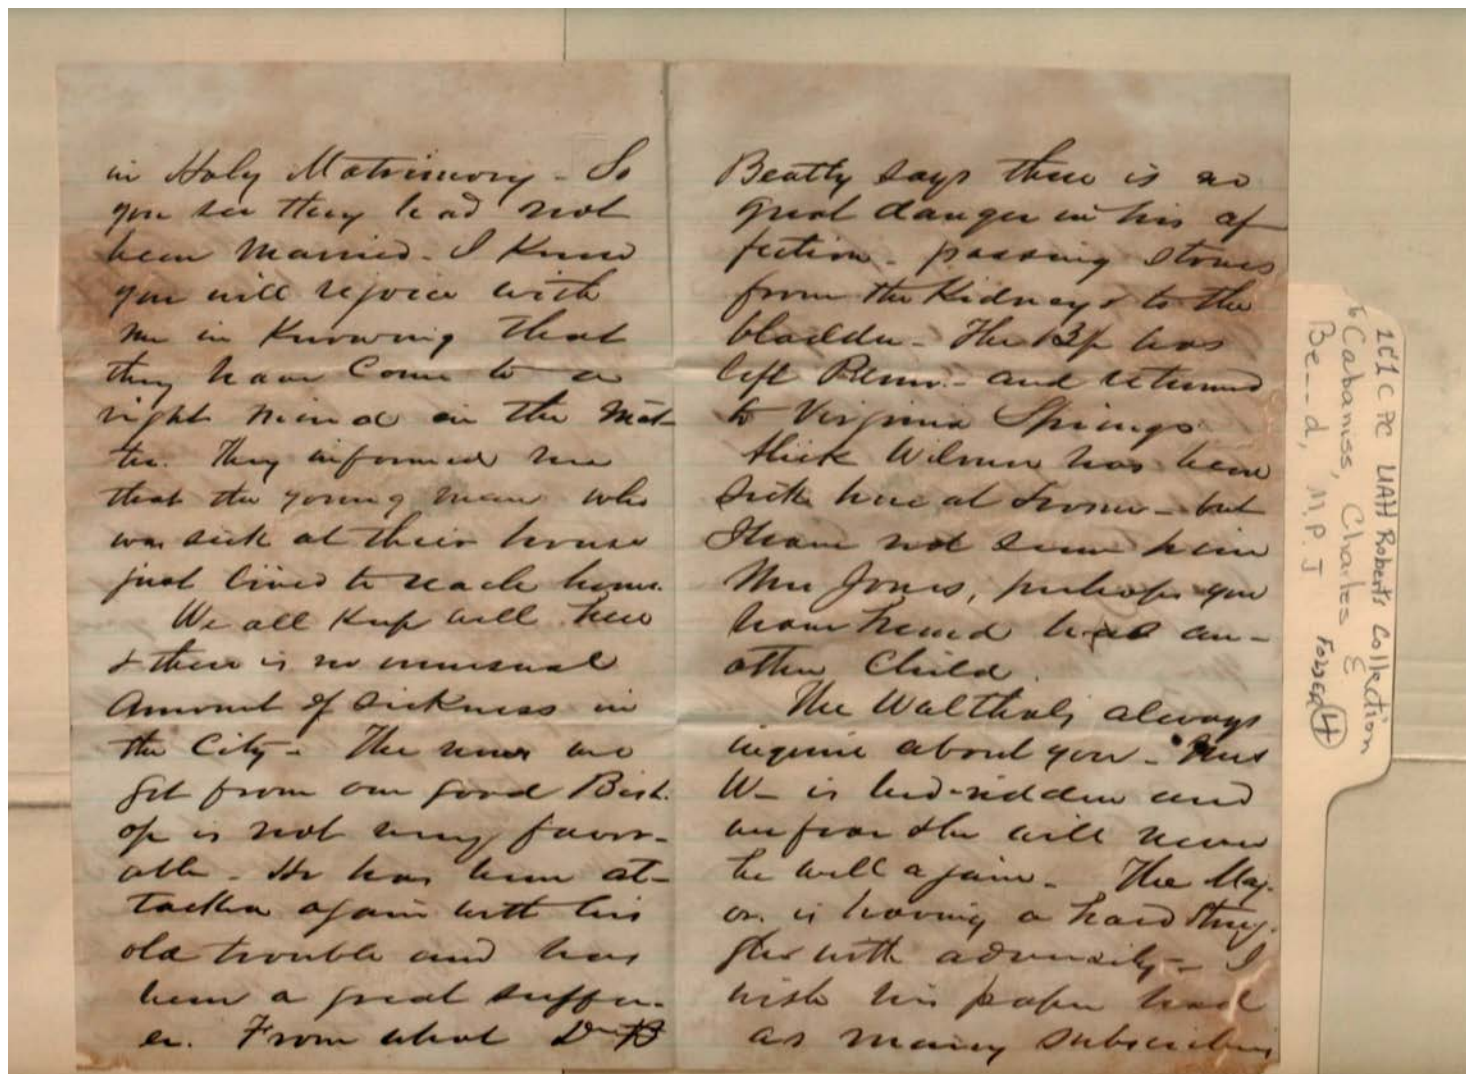 in Holy Matrimony - So
you see they had not
been married. I know
you will rejoice with
me in knowing that
they have come to a
right mind in the mat-
ter. They informed me
that the young man who
was sick at their house
just lived to reach home.
We all keep well here
& there is no unusual
amount of sickness in
the City - The news we
get from our good Bish-
op is not very favor-
able - He has been at-
tacked again with his
old trouble and has
been a great suffer-
er. From what Dr B
Beatty says there is no
great danger in his af
fection - passing stones
from the Kidneys to the
bladder - The Bp has
left and returned
to Virginia Springs
has been
sick here at home - but
I have not seen him
Mrs Jones, perhaps you
have heard has an-
other Child.
The Walthals always
inquire about you - Mrs
W- is bed-ridden and
we fear she will never
be well again - The Maj-
or is having a hard strug-
gle with adversity - I
wish his paper had
as many subscribers
1C1C PC UAH Roberts Collection
to Cabaniss, Charles E
Be--d, M.P.J
Folder 4